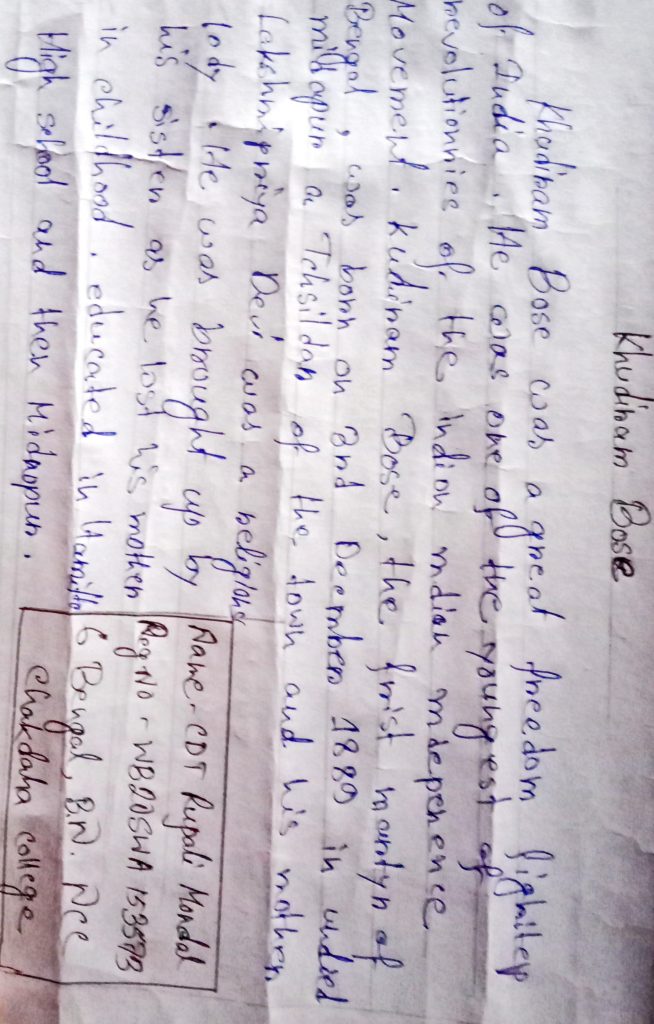 Khudiram Bose
Khudiram Bose was a great freedom fighter
of India. He was one of the youngest of
revolutionries of the indion indian independence
Movement. Kudiram Bose, the frist martyr of
Bengal, was born on 2nd December 1889 in
a Tehsildar of the town and his mother
Lakshmipriya Devi was a religious
lady. He was brought up by
his sister as he lost his mother
in childhood. educated in
High school and then Midnapur.
Name - CDT Rupali Mondal
Reg No - WB20SWA153573
6 Bengal, BN. Ncc
Chakdaha college